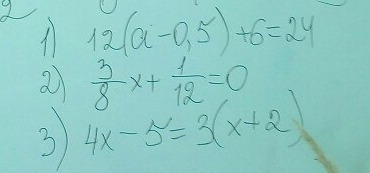 1) 12(a-0,5)+6=24
2) 3/8 x + 1/12 = 0
3) 4x-5=3(x+2)